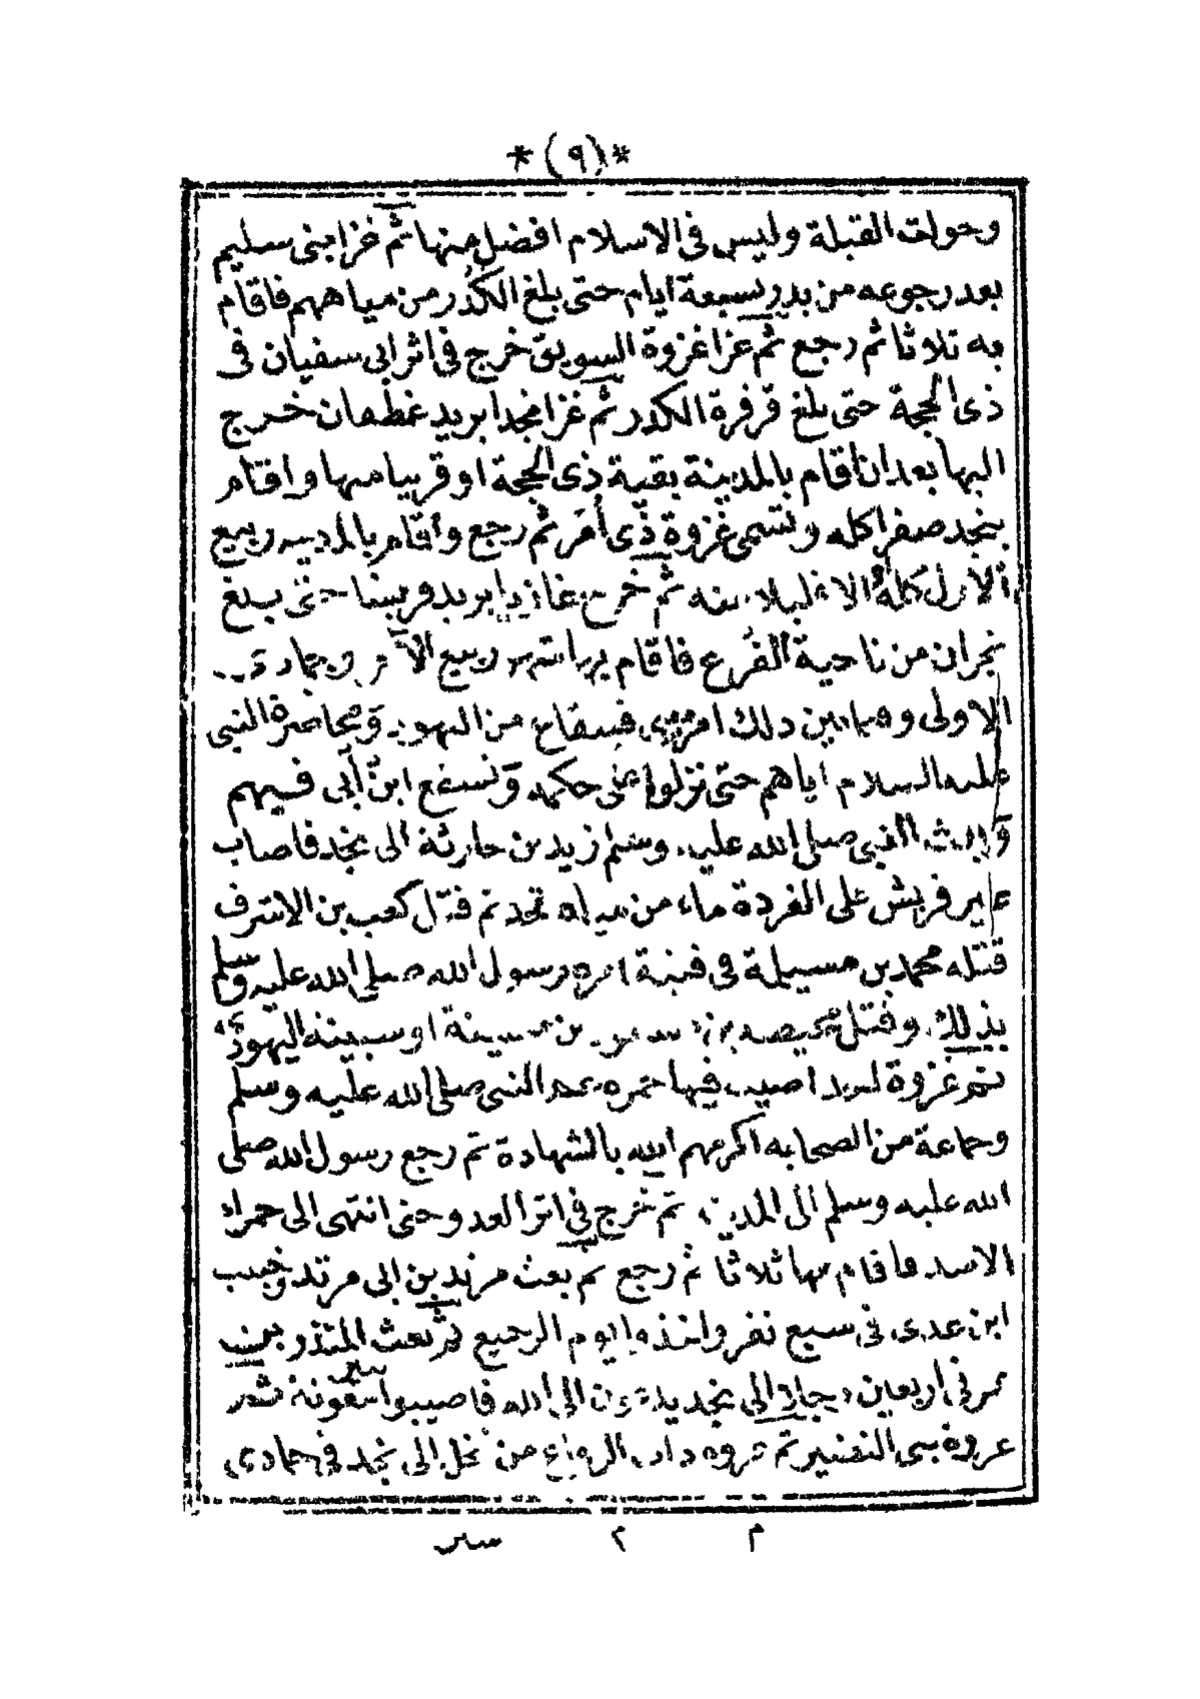 *(٩)*
وحولت القبلة وليس فى الاسلام افضل منها ثم غزا بنى سليم
بعد رجوعه من بدر بسبعة ايام حتى بلغ الكُدر من مياههم فاقام
به ثلاثا ثم رجع ثم غزا غزوة السويق خرج فى اثر ابى سفيان فى
ذى الحجة حتى بلغ قرقرة الكدر ثم غزا نجدا يريد غطفان خرج
اليها بعد ان اقام بالمدينة بقية ذى الحجة او قريبا منها واقام
بنجد صفرا كله وتسمى غزوة ذى أَمَر ثم رجع واقام بالمدينه ربيع
الاول كله الا قليلا منه ثم خرج غازيا يريد قريشا حتى بلغ
نجران من ناحية الفُرع فاقام بها شهر ربيع الآخر وجمادى
الاولى وهما بين ذلك امر بنى قينقاع من اليهود ومحاصرة النبى
عليه السلام اياهم حتى نزلوا على حكمه وتشفع ابن أبى فيهم
وبعث النبى صلى الله عليه وسلم زيد بن حارثة الى نجد فاصاب
عير قريش على الفردة ماء من مياه نجد ثم قتل كعب بن الاشرف
قتله محمد بن مسيلمة فى فتية امره رسول الله صلى الله عليه وسلم
بذلك وقتل محيصه بن سينة او سبينه اليهودى
ثم غزوة احد اصيب فيها حمزه عم النبى صلى الله عليه وسلم
وجماعة من الصحابه اكرمهم الله بالشهادة ثم رجع رسول الله صلى
الله عليه وسلم الى المدينة ثم خرج فى اثر العدو حتى انتهى الى حمراء
الاسد فاقام بها ثلاثا ثم رجع ثم بعث مرثد بن ابى مرثد وخبيب
ابن عدى فى سبع نفر واخذه ايوم الرجيع ثم بعث المنذر بن
عمر فى اربعين رجلا الى نجد الى الله فاصيبوا ببئر معونة ثم
غزوة بنى النضير ثم غزوه ذات الرقاع من نخل الى نجد فى جمادى
م ٢ سير